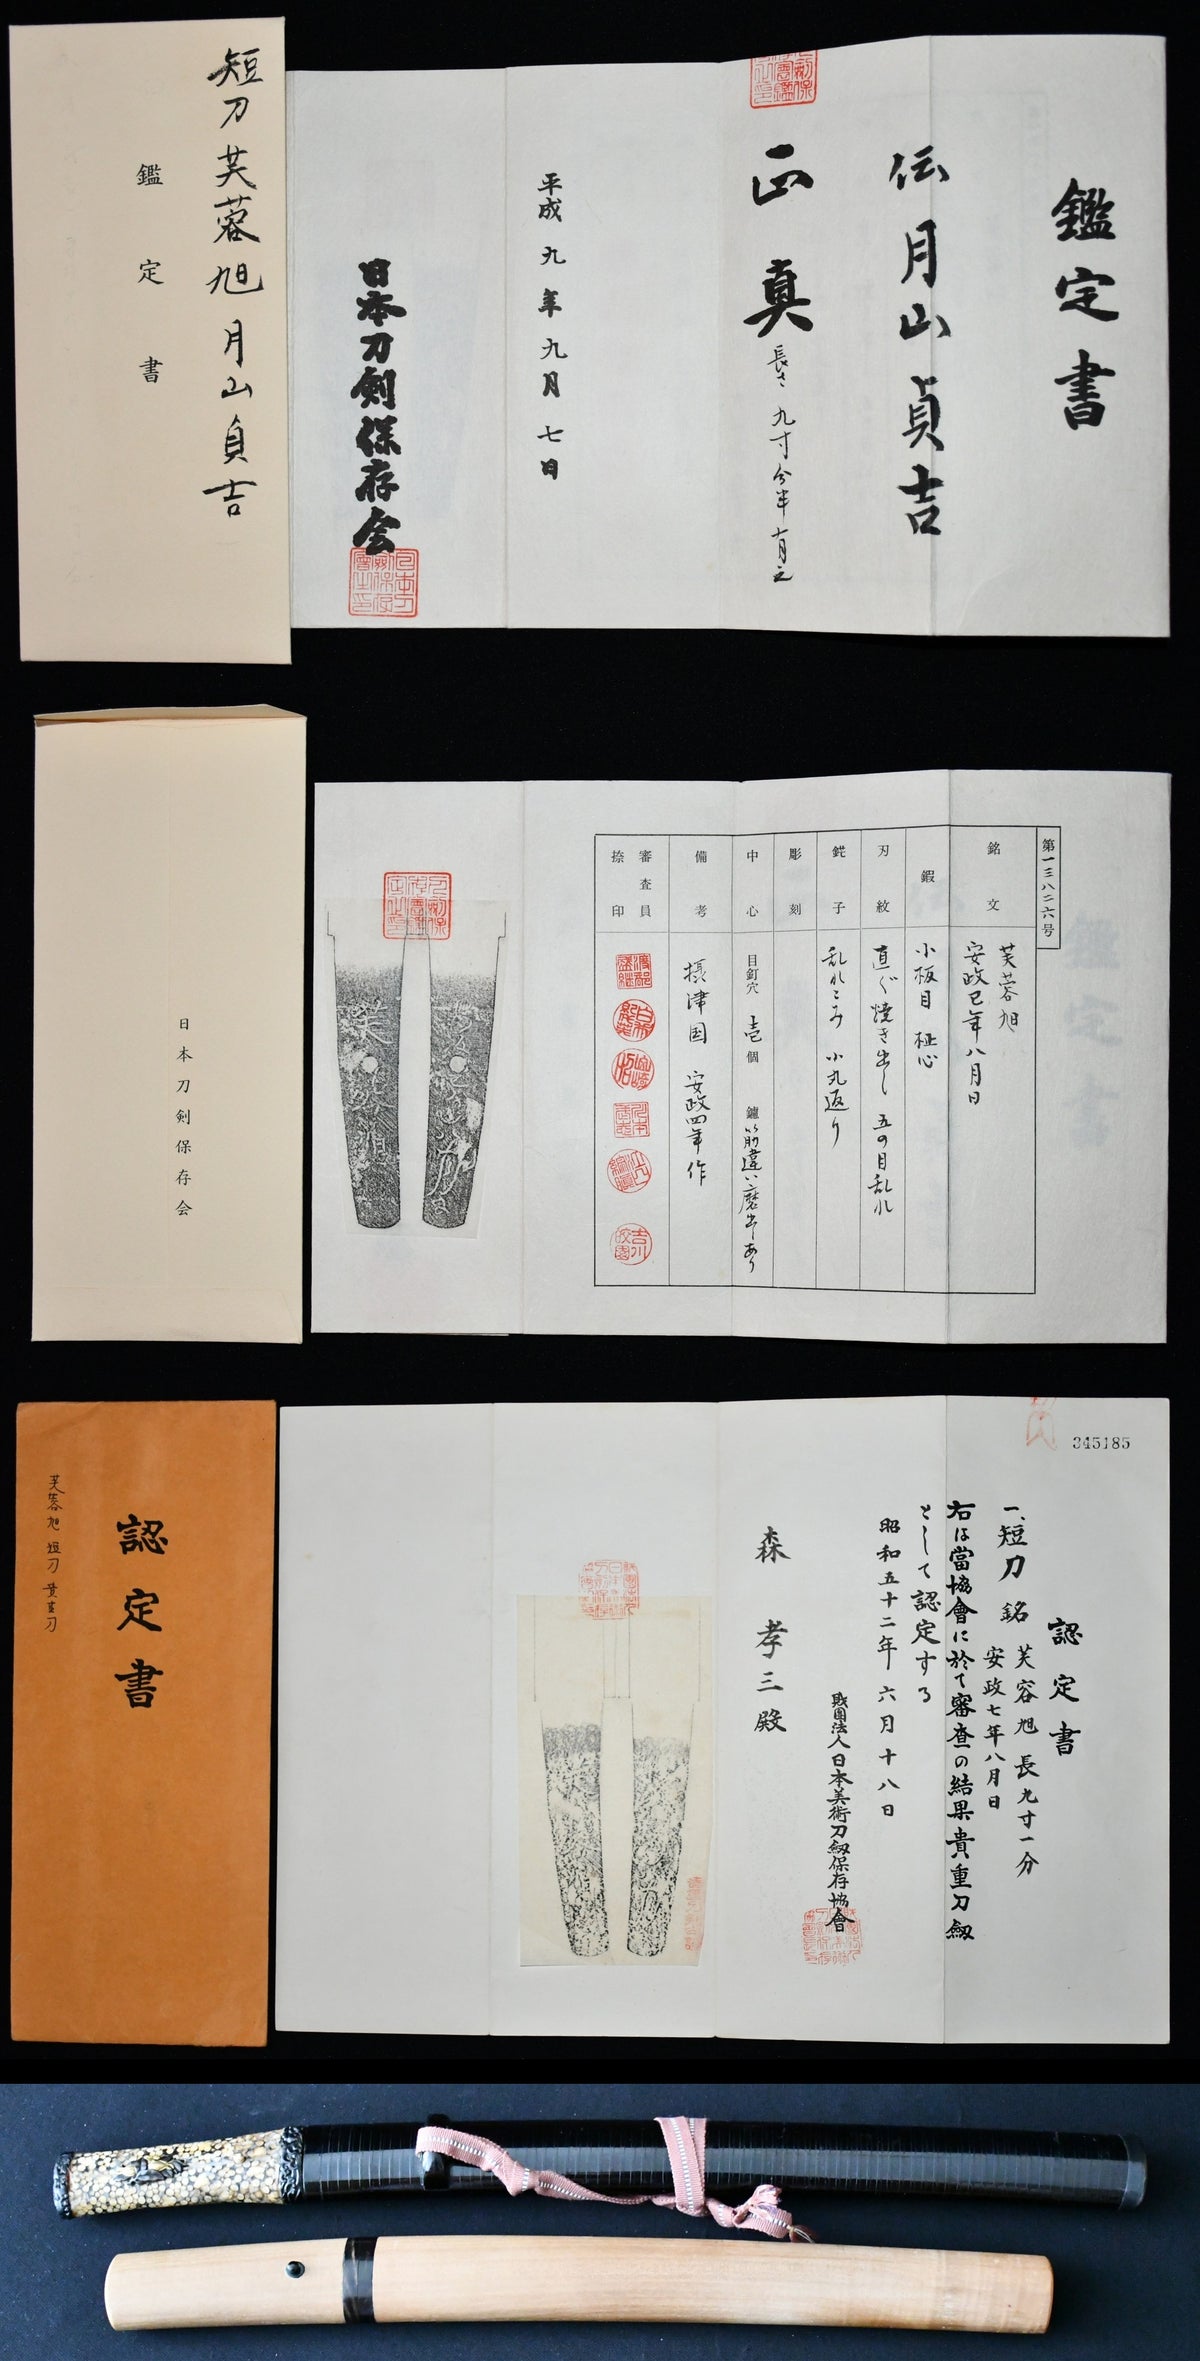 短刀芙蓉旭月山貞吉
鑑定書
鑑定書
伝月山貞吉
正真
長さ九寸分半有之
平成九年九月七日
日本刀剣保存会
日本刀剣保存会
第一三八二六号
銘文
芙蓉旭
安政巳年八月日
鍛
小板目 柾心
刃紋
直ぐ焼き出し 五の目乱れ
鋩子
乱れこみ 小丸返り
彫刻
中心
目釘穴 壱個 鑢 筋違い磨出しあり
備考
摂津国 安政四年作
審査員
捺印
芙蓉旭 短刀 貴重刀
認定書
345185
認定書
一、短刀 銘
芙容旭 長九寸一分
安政七年八月日
右は當協會に於て審査の結果貴重刀劔
として認定する
昭和五十二年六月十八日
財團法人日本美術刀劔保存協會
森 孝三殿